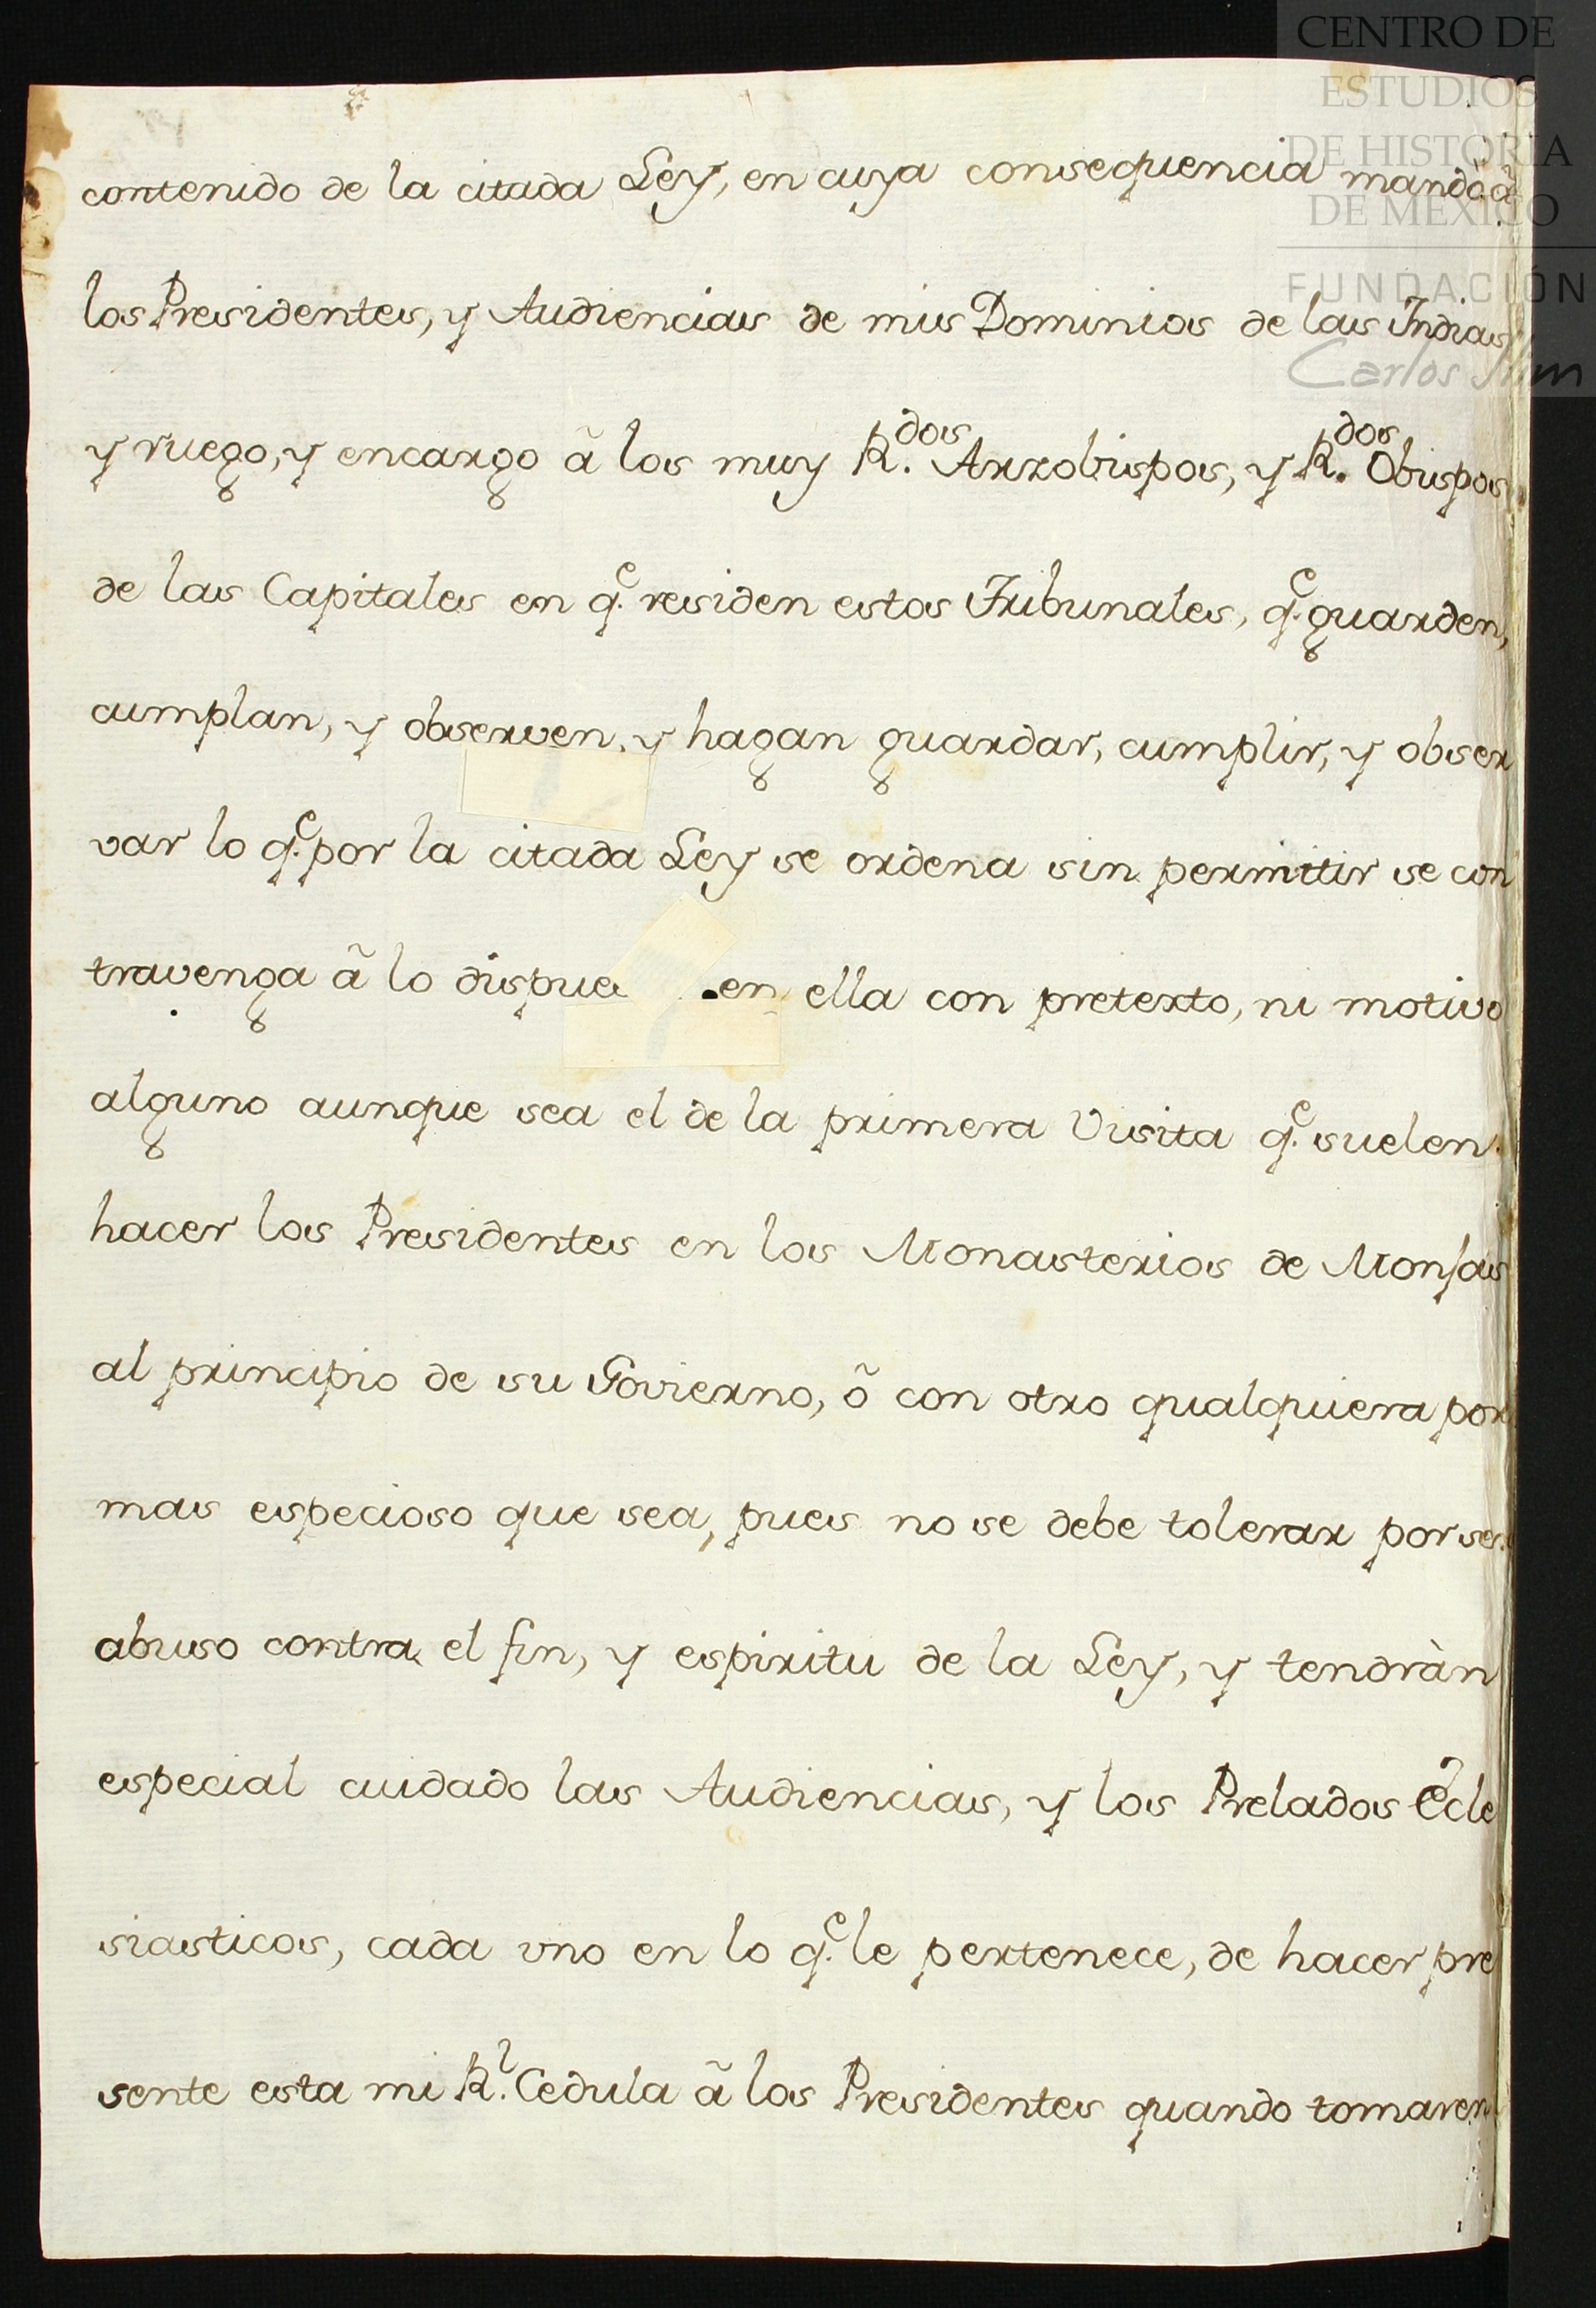 CENTRO DE
ESTUDIOS
DE HISTORIA
DE MEXICO
FUNDACIÓN
Carlos Slim
contenido de la citada Ley, en cuya consequencia mando ã
los Presidentes, y Audiencias de mis Dominios de las Indias
y ruego, y encargo ã los muy R.dos Arzobispos, y R.dos Obispos
de las Capitales en q.e residen estos Tribunales, q.e guarden,
cumplan, y observen, y hagan guardar, cumplir, y obser
var lo q.e por la citada Ley se ordena sin permitir se con
travenga ã lo dispue en ella con pretexto, ni motivo
alguno aunque sea el de la primera Visita q.e suelen
hacer los Presidentes en los Monasterios de Monjas
al principio de su Govierno, õ con otro qualquiera por
mas especioso que sea, pues no se debe tolerar por ser
abuso contra el fin, y espiritu de la Ley, y tendràn
especial cuidado las Audiencias, y los Prelados Ecle
siasticos, cada vno en lo q.e le pertenece, de hacer pre
sente esta mi R.l Cedula ã los Presidentes quando tomaren